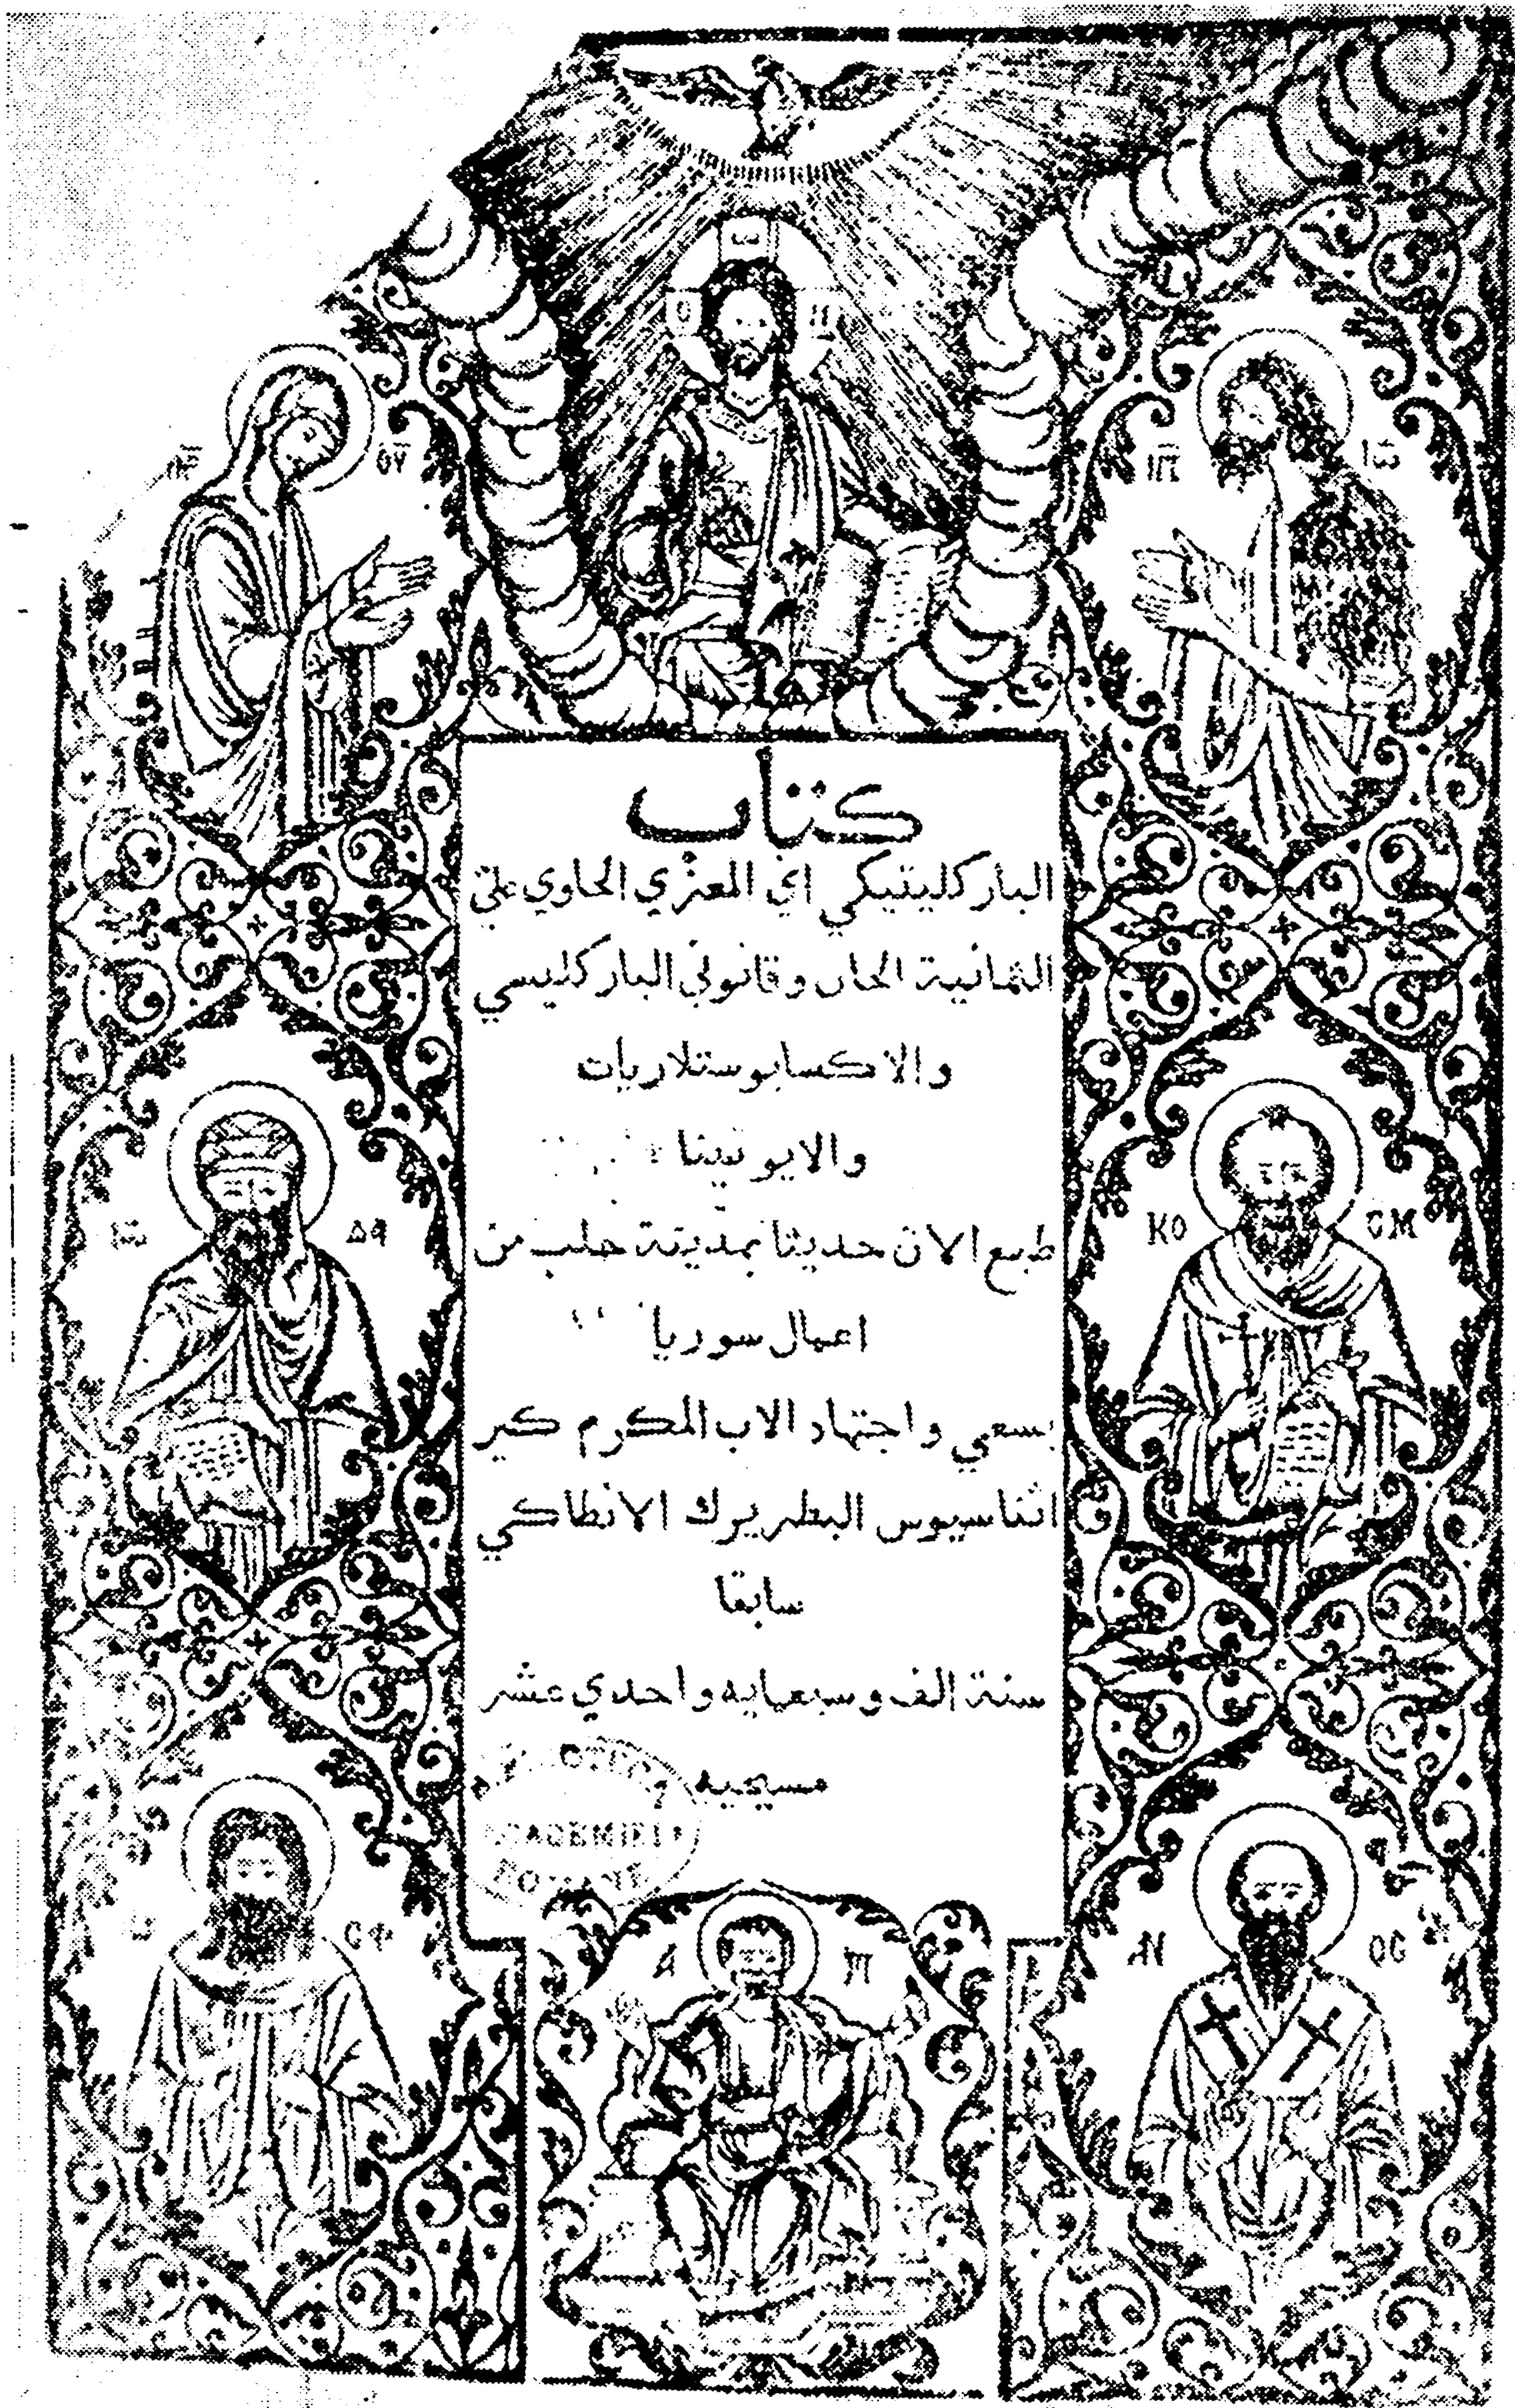 ω
Ο Η
ΜΡ ΘΥ
ΠΡ ΙΩ
كتاب
الباركليتيكي اي المعزي الحاوي علي
الثمانية الحان وقانوني الباركليسي
والاكسابوستلاريات
والايوثينا
طبع الان حديثا بمدينة حلب من
اعمال سوريا
بسعي واجتهاد الاب المكرم كير
اثناسيوس البطريرك الانطاكي
سابقا
سنة الف وسبعمايه واحدي عشر
مسيحيه
ΙΩ ΔΑ
ΚΟ ΣΜ
ΑΠ
ACADEMIEI
ROMANE